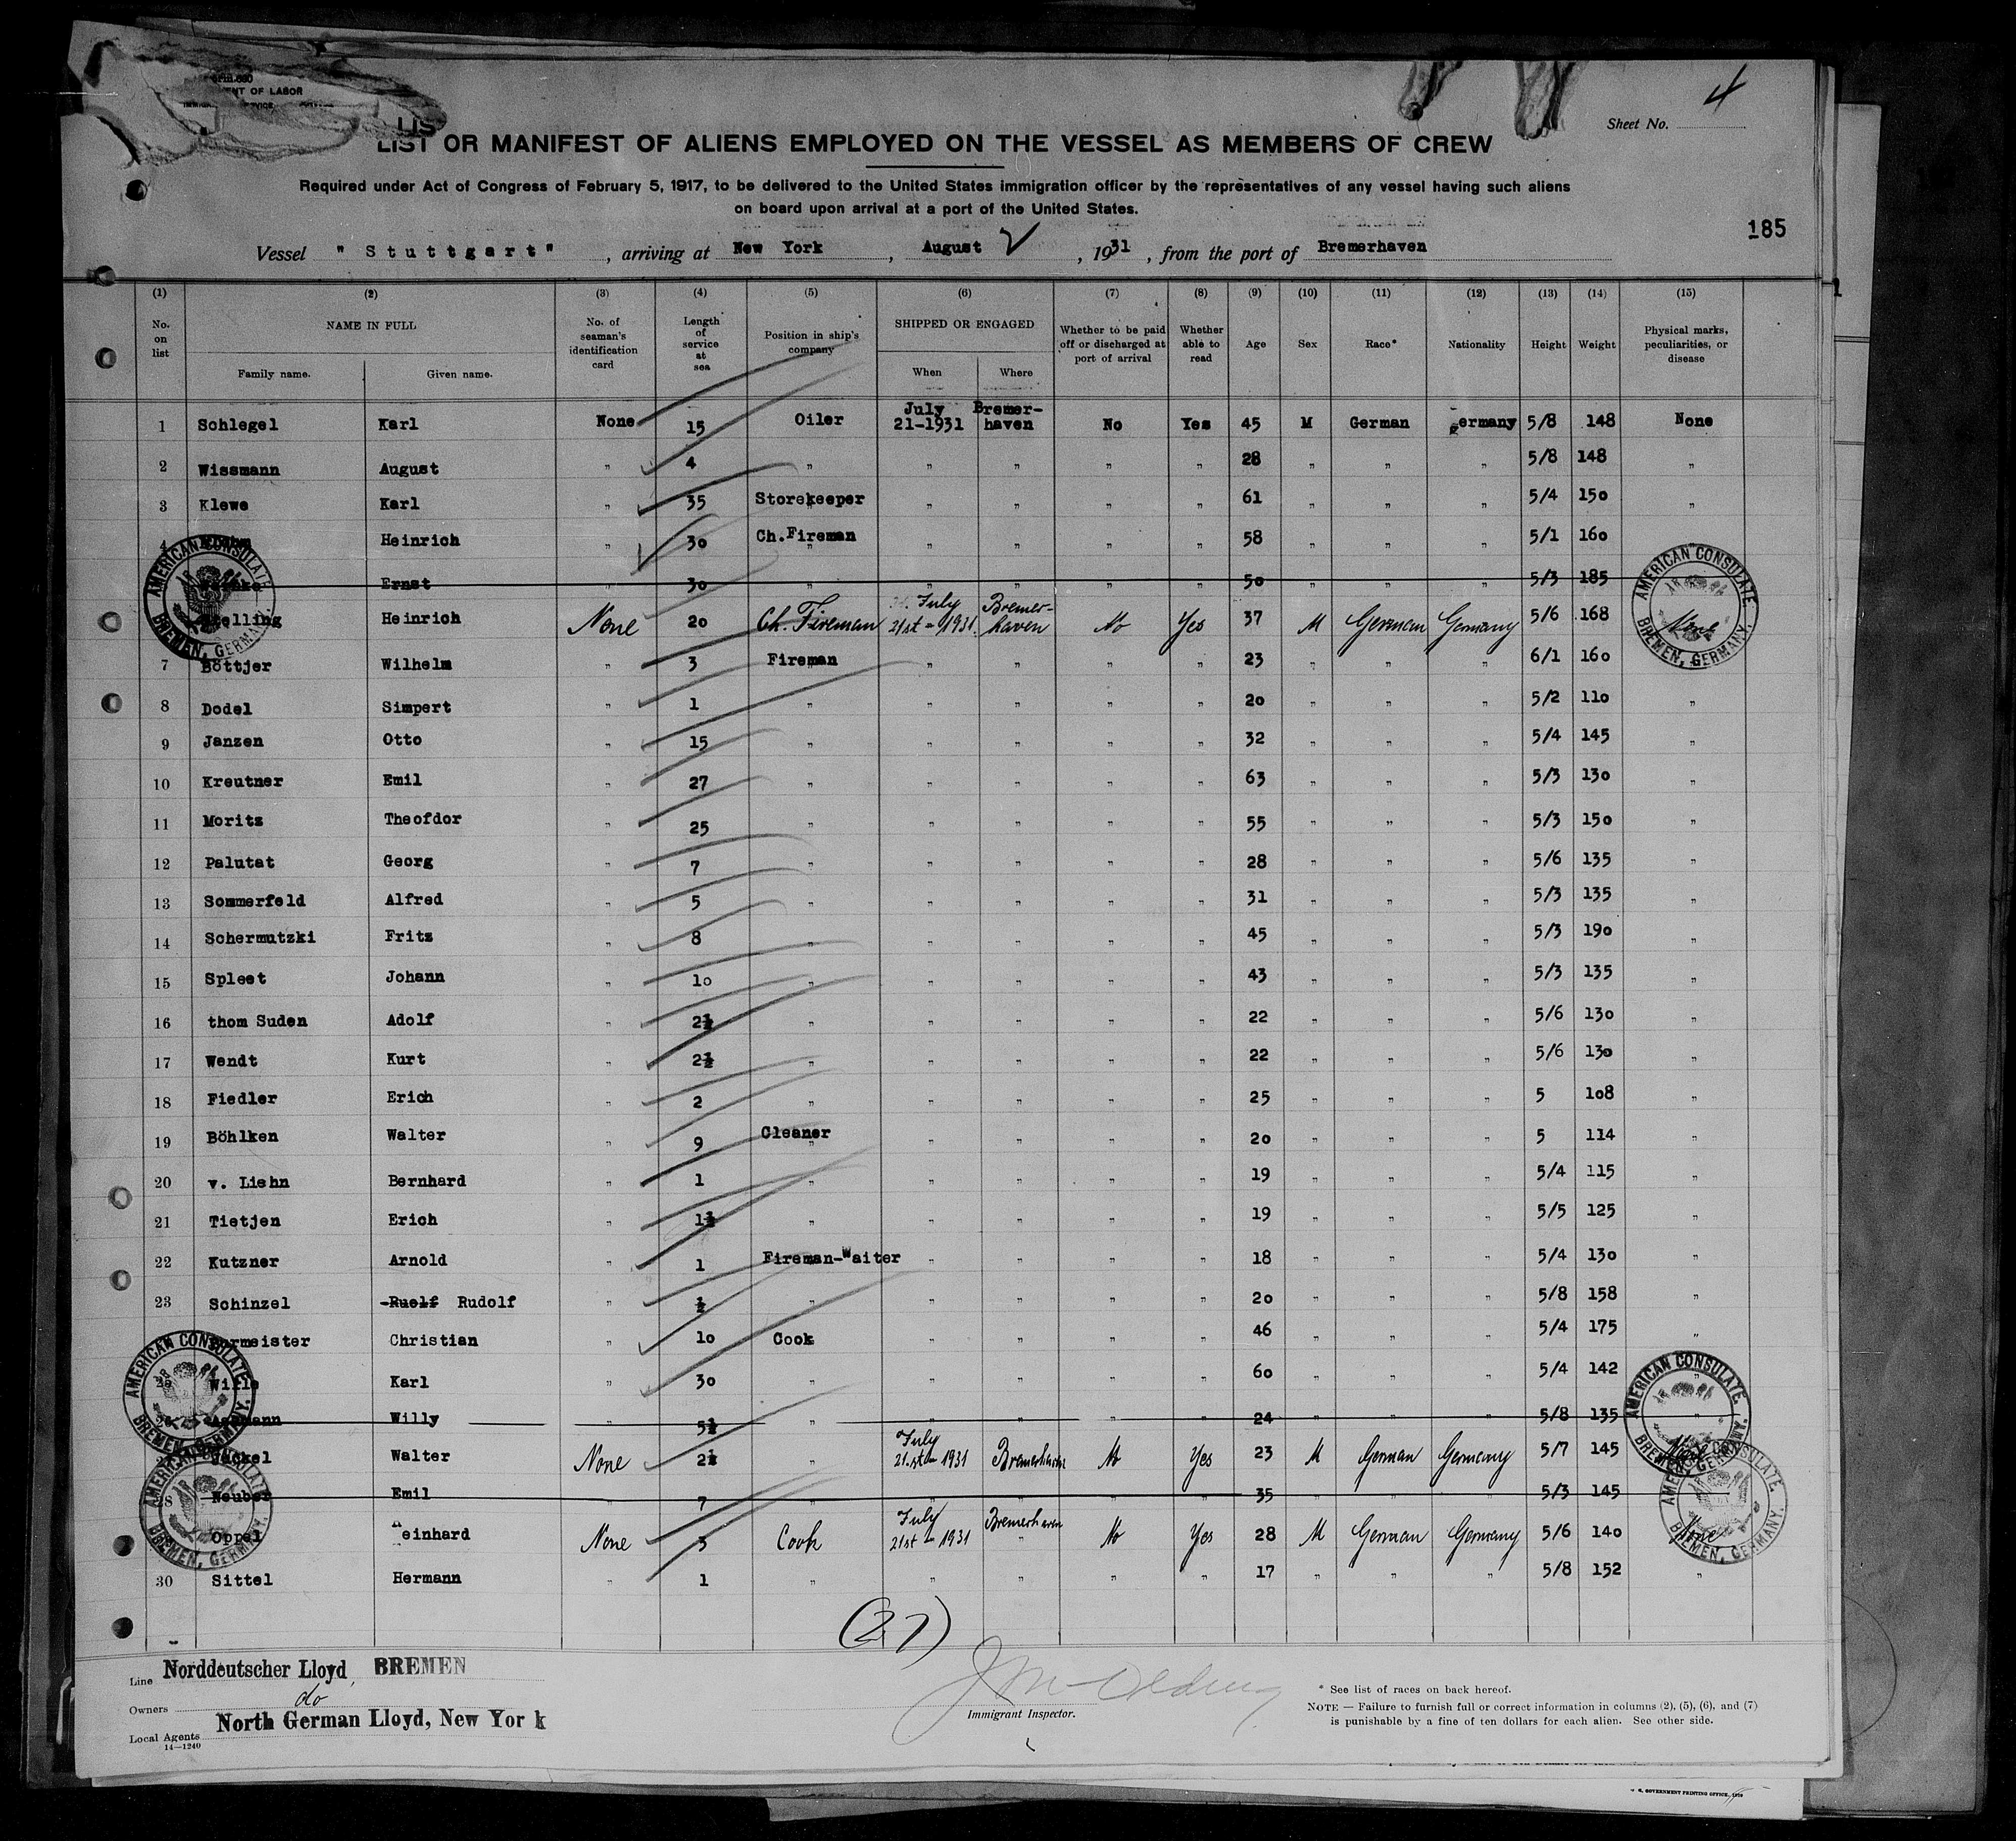 ENT OF LABOR
Sheet No. 4
LIST OR MANIFEST OF ALIENS EMPLOYED ON THE VESSEL AS MEMBERS OF CREW
Required under Act of Congress of February 5, 1917, to be delivered to the United States immigration officer by the representatives of any vessel having such aliens
on board upon arrival at a port of the United States.
185
Vessel "Stuttgart", arriving at New York, August 2, 1931, from the port of Bremerhaven
(1) (2) (3) (4) (5) (6) (7) (8) (9) (10) (11) (12) (13) (14) (15)
No. on list NAME IN FULL Family name. Given name. No. of seaman's identification card Length of service at sea Position in ship's company SHIPPED OR ENGAGED When Where Whether to be paid off or discharged at port of arrival Whether able to read Age Sex Race* Nationality Height Weight Physical marks, peculiarities, or disease
1 Schlegel Karl None 15 Oiler July 21-1931 Bremer-haven No Yes 45 M German germany 5/8 148 None
2 Wissmann August " 4 " " " " " 28 " " " 5/8 148 "
3 Klewe Karl " 35 Storekeeper " " " " 61 " " " 5/4 150 "
4 Heinrich " 30 Ch.Fireman " " " " 58 " " " 5/1 160
Ernst " 30 " " " " " 50 " " " 5/3 185
Stelling Heinrich None 20 Ch. Fireman July 21st - 1931 Bremer-haven No Yes 37 M German Germany 5/6 168 None
7 Böttjer Wilhelm " 3 Fireman " " " " 23 " " " 6/1 160
8 Dodel Simpert " 1 " " " " " 20 " " " 5/2 110 "
9 Janzen Otto " 15 " " " " " 32 " " " 5/4 145 "
10 Kreutner Emil " 27 " " " " " 63 " " " 5/3 130 "
11 Moritz Theofdor " 25 " " " " " 55 " " " 5/3 150 "
12 Palutat Georg " 7 " " " " " 28 " " " 5/6 135 "
13 Sommerfeld Alfred " 5 " " " " " 31 " " " 5/3 135 "
14 Schermutzki Fritz " 8 " " " " " 45 " " " 5/3 190 "
15 Spleet Johann " 10 " " " " " 43 " " " 5/3 135 "
16 thom Suden Adolf " 2½ " " " " " 22 " " " 5/6 130 "
17 Wendt Kurt " 2½ " " " " " 22 " " " 5/6 130 "
18 Fiedler Erich " 2 " " " " " 25 " " " 5 108 "
19 Böhlken Walter " 9 Cleaner " " " " 20 " " " 5 114 "
20 v. Liehn Bernhard " 1 " " " " " 19 " " " 5/4 115 "
21 Tietjen Erich " 1½ " " " " " 19 " " " 5/5 125 "
22 Kutzner Arnold " 1 Fireman-Waiter " " " " 18 " " " 5/4 130 "
23 Schinzel Ruolf Rudolf " ½ " " " " " 20 " " " 5/8 158 "
Christian " 10 Cook " " " " 46 " " " 5/4 175 "
Karl " 30 " " " " " 60 " " " 5/4 142 "
Willy " 5½ " " " " " 24 " " " 5/8 135 "
Jäckel Walter None 2½ July 21st - 1931 Bremerhaven No Yes 23 M German Germany 5/7 145 None
28 Neuber Emil 7 " " " " " 35 " " " 5/3 145
Oppel einhard None 3 Cook July 21st - 1931 Bremerhaven No Yes 28 M German Germany 5/6 140 None
30 Sittel Hermann " 1 " " " " " 17 " " " 5/8 152 "
AMERICAN CONSULATE. BREMEN, GERMANY.
AMERICAN CONSULATE. BREMEN, GERMANY.
AMERICAN CONSULATE. BREMEN, GERMANY.
AMERICAN CONSULATE. BREMEN, GERMANY.
AMERICAN CONSULATE. BREMEN, GERMANY.
AMERICAN CONSULATE. BREMEN, GERMANY.
(27)
Line Norddeutscher Lloyd, BREMEN
Owners do
Local Agents North German Lloyd, New York
14—1240
Immigrant Inspector.
* See list of races on back hereof.
NOTE — Failure to furnish full or correct information in columns (2), (5), (6), and (7)
is punishable by a fine of ten dollars for each alien. See other side.
GOVERNMENT PRINTING OFFICE